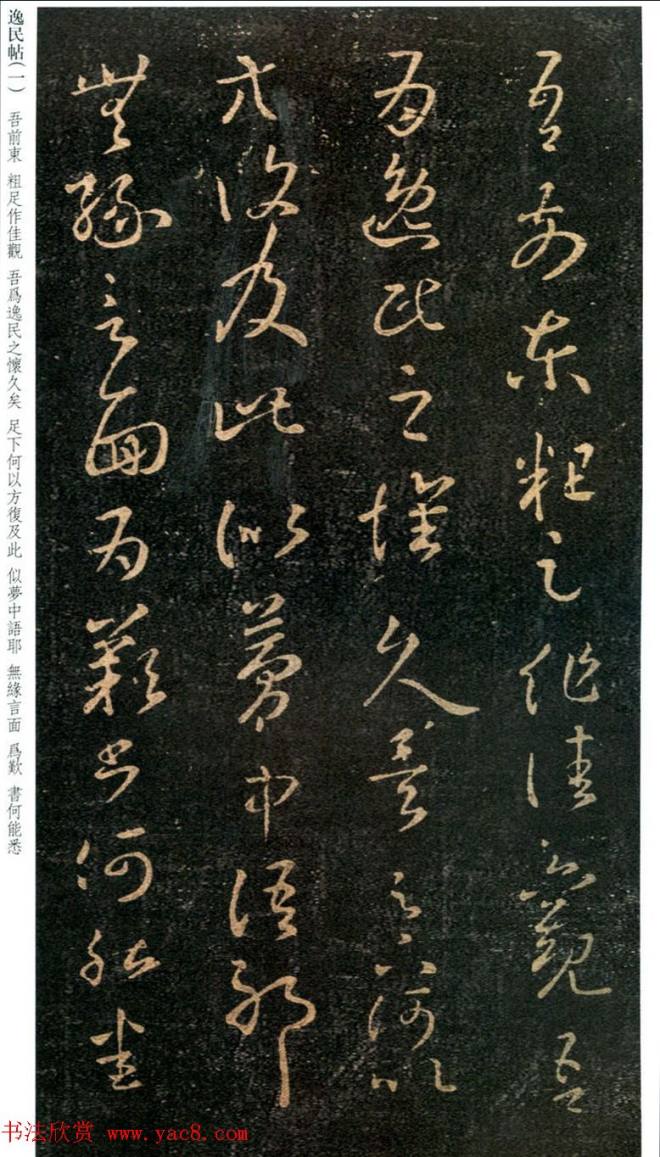 吾前東粗足作佳觀吾
為逸民之懷久矣足下何以
方復及此似夢中語耶
無緣言面為歎書何能悉
逸民帖(一) 吾前東 粗足作佳觀 吾爲逸民之懷久矣 足下何以方復及此 似夢中語耶 無緣言面 爲歎 書何能悉
书法欣赏 www.yac8.com